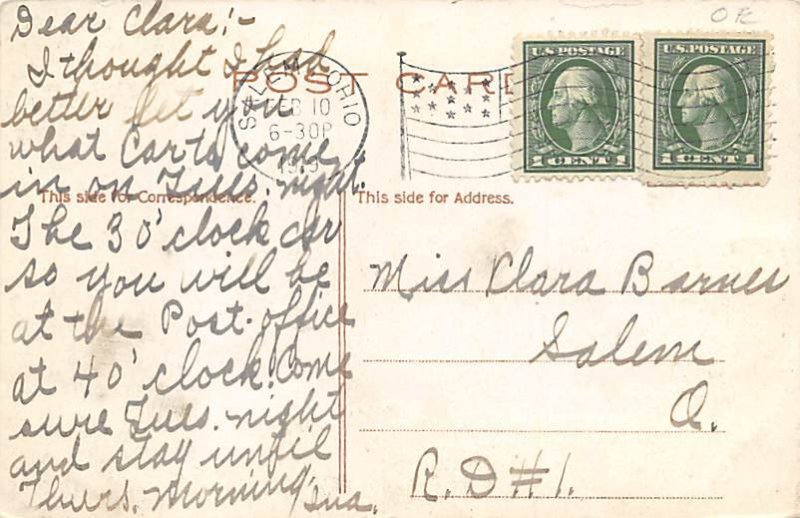 Dear Clara:-
I thought I had
better let you
what Car to come
in on Tues. night.
The 3 o'clock car
so you will be
at the Post-office
at 4 o'clock. Come
sure Tues. night
and stay until
Thurs. Morning.
Ina.
POST CARD
This side for Correspondence.
This side for Address.
SALEM OHIO
FEB 10
6-30P
U.S. POSTAGE
1 CENT 1
U.S. POSTAGE
1 CENT 1
Miss Clara Barnes
Salem
O.
R.D#1.